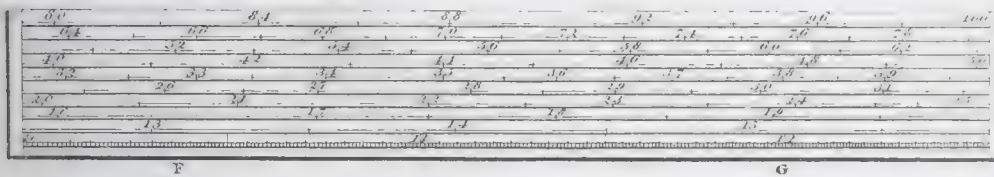 8,0 8,4 8,8 9,2 9,6 10,0
6,4 6,6 6,8 7,0 7,2 7,4 7,6 7,8
5,2 5,4 5,6 5,8 6,0 6,2
4,0 4,2 4,4 4,6 4,8 5,0
3,2 3,3 3,4 3,5 3,6 3,7 3,8 3,9
2,6 2,7 2,8 2,9 3,0 3,1
2,0 2,1 2,2 2,3 2,4 2,5
1,6 1,7 1,8 1,9
1,3 1,4 1,5
F G